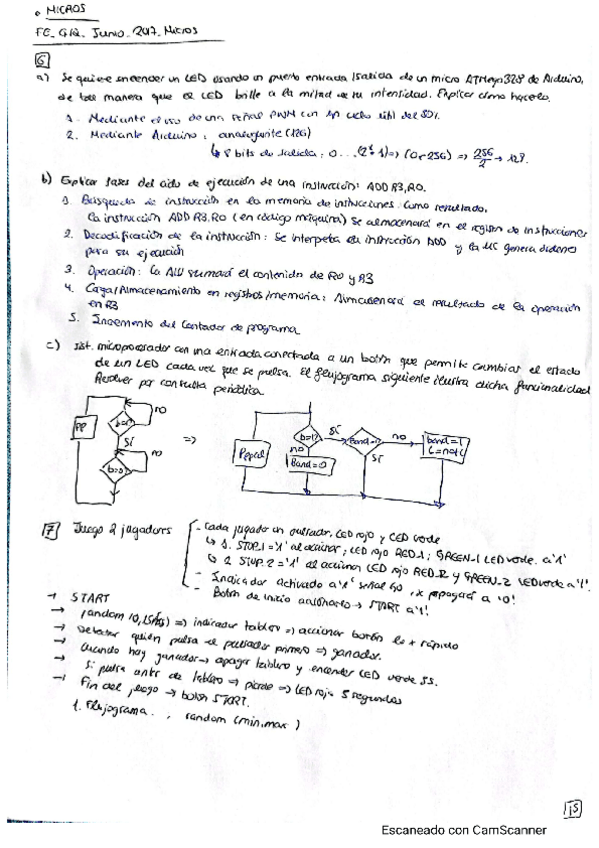 • MICROS
FE_GIA_Junio_2017_Micros
6
a) Se quiere encender un LED usando un puerto entrada/salida de un micro ATMega328 de Arduino,
de tal manera que el LED brille a la mitad de su intensidad. Explicar cómo hacerlo.
1. Mediante el uso de una señal PWM con un ciclo útil del 50%.
2. Mediante Arduino: analogWrite(126)
↳ 8 bits de salida: 0...(2⁸-1) => (0-256) => 256/2 → 128.
b) Explicar fases del ciclo de ejecución de una instrucción: ADD R3,R0.
1. Búsqueda de instrucción en la memoria de instrucciones. Como resultado,
la instrucción ADD R3,R0 (en código máquina) se almacenará en el registro de instrucciones
2. Decodificación de la instrucción: Se interpreta la instrucción ADD y la UC genera órdenes
para su ejecución
3. Operación: la ALU sumará el contenido de R0 y R3
4. Carga/Almacenamiento en registros/memoria: Almacenará el resultado de la operación
en R3
5. Incremento del contador de programa
c) Sist. microprocesador con una entrada conectada a un botón que permite cambiar el estado
de un LED cada vez que se pulsa. El flujograma siguiente ilustra dicha funcionalidad
Resolver por consulta periódica.
PP
no
sí
no
=>
Pppal
b=1?
sí
no
Band=0
no
sí
band=1
7 Juego 2 jugadores
- Cada jugador un pulsador, LED rojo y LED verde
↳ 1. STOP_1='1' al accionar; LED rojo RED_1; GREEN_1 LED verde a '1'
↳ 2. STOP_2='1' al accionar LED rojo RED_2 y GREEN_2 LED verde a '1'.
- Indicador activado a '1' señal GO, apagará a '0'
- Botón de inicio accionarlo → START a '1'.
→ START
→ random => indicador tablero => accionar botón lo + rápido
→ Detectar quién pulsa el pulsador primero => ganador.
→ Cuando hay ganador → apagar tablero y encender LED verde 5s.
→ Si pulsa antes de tablero => pierde => LED rojo 5 segundos
→ Fin del juego → botón START.
1. Flujograma. ; random (min,max)
15
Escaneado con CamScanner